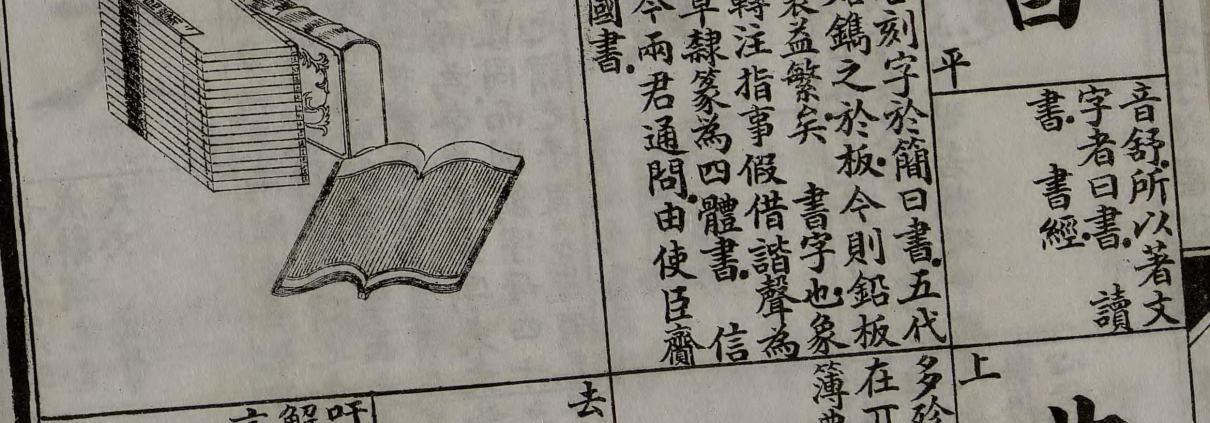 平
音舒.所以著文
字者曰書.　讀
書.　書經.
刻字於簡曰書.五代
鐫之於板.今則鉛板
益繁矣　書字也.象
轉注指事假借諧聲為
草隸篆為四體書.　信
今兩君通問.由使臣齎
國書.
上
多
在
簿
去
吁
解